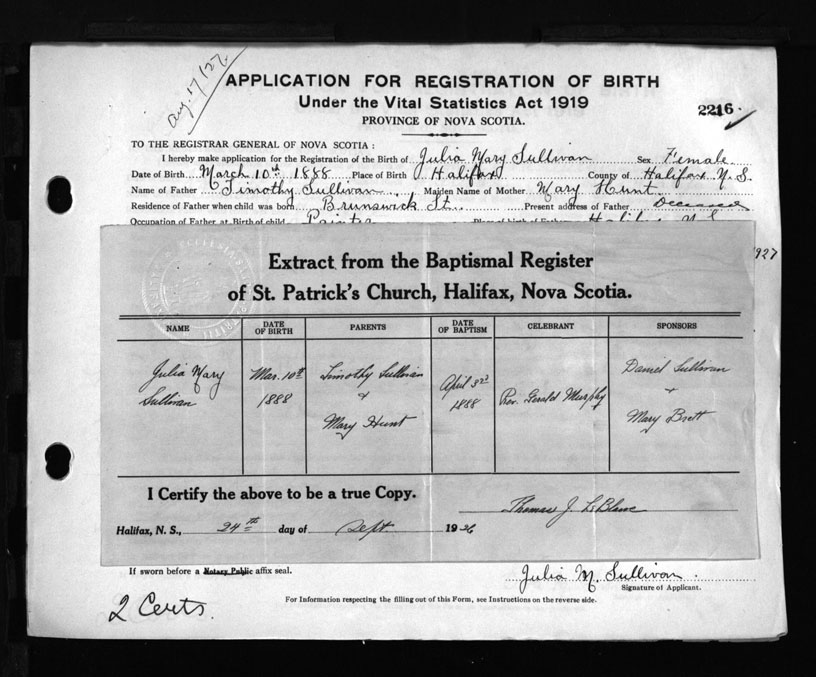 Aug. 17/27
APPLICATION FOR REGISTRATION OF BIRTH
Under the Vital Statistics Act 1919
2216
PROVINCE OF NOVA SCOTIA.
TO THE REGISTRAR GENERAL OF NOVA SCOTIA :
I hereby make application for the Registration of the Birth of Julia Mary Sullivan Sex Female
Date of Birth March 10th 1888 Place of Birth Halifax County of Halifax N.S.
Name of Father Timothy Sullivan Maiden Name of Mother Mary Hunt
Residence of Father when child was born Brunswick St. Present address of Father Deceased
Occupation of Father at Birth of child Painter Place of birth of Father Halifax N.S.
1927
Extract from the Baptismal Register
of St. Patrick's Church, Halifax, Nova Scotia.
NAME DATE OF BIRTH PARENTS DATE OF BAPTISM CELEBRANT SPONSORS
Julia Mary Sullivan Mar. 10th 1888 Timothy Sullivan + Mary Hunt April 3rd 1888 Rev. Gerald Murphy Daniel Sullivan + Mary Brett
I Certify the above to be a true Copy.
Thomas J. LeBlanc
Halifax, N. S., 24th day of Sept 1926
If sworn before a Notary Public affix seal.
Julia M. Sullivan
Signature of Applicant.
For Information respecting the filling out of this Form, see Instructions on the reverse side.
2 Certs.